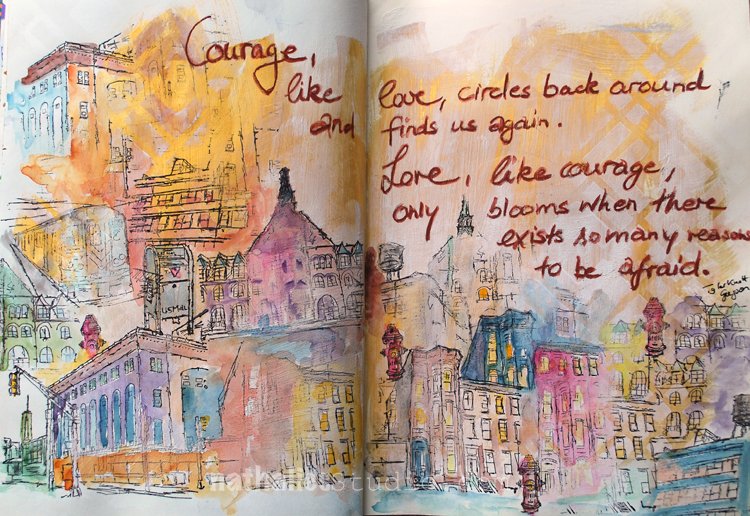 Courage,
like love, circles back around
and finds us again.
Love, like courage,
only blooms when there
exists so many reasons
to be afraid.
USMail